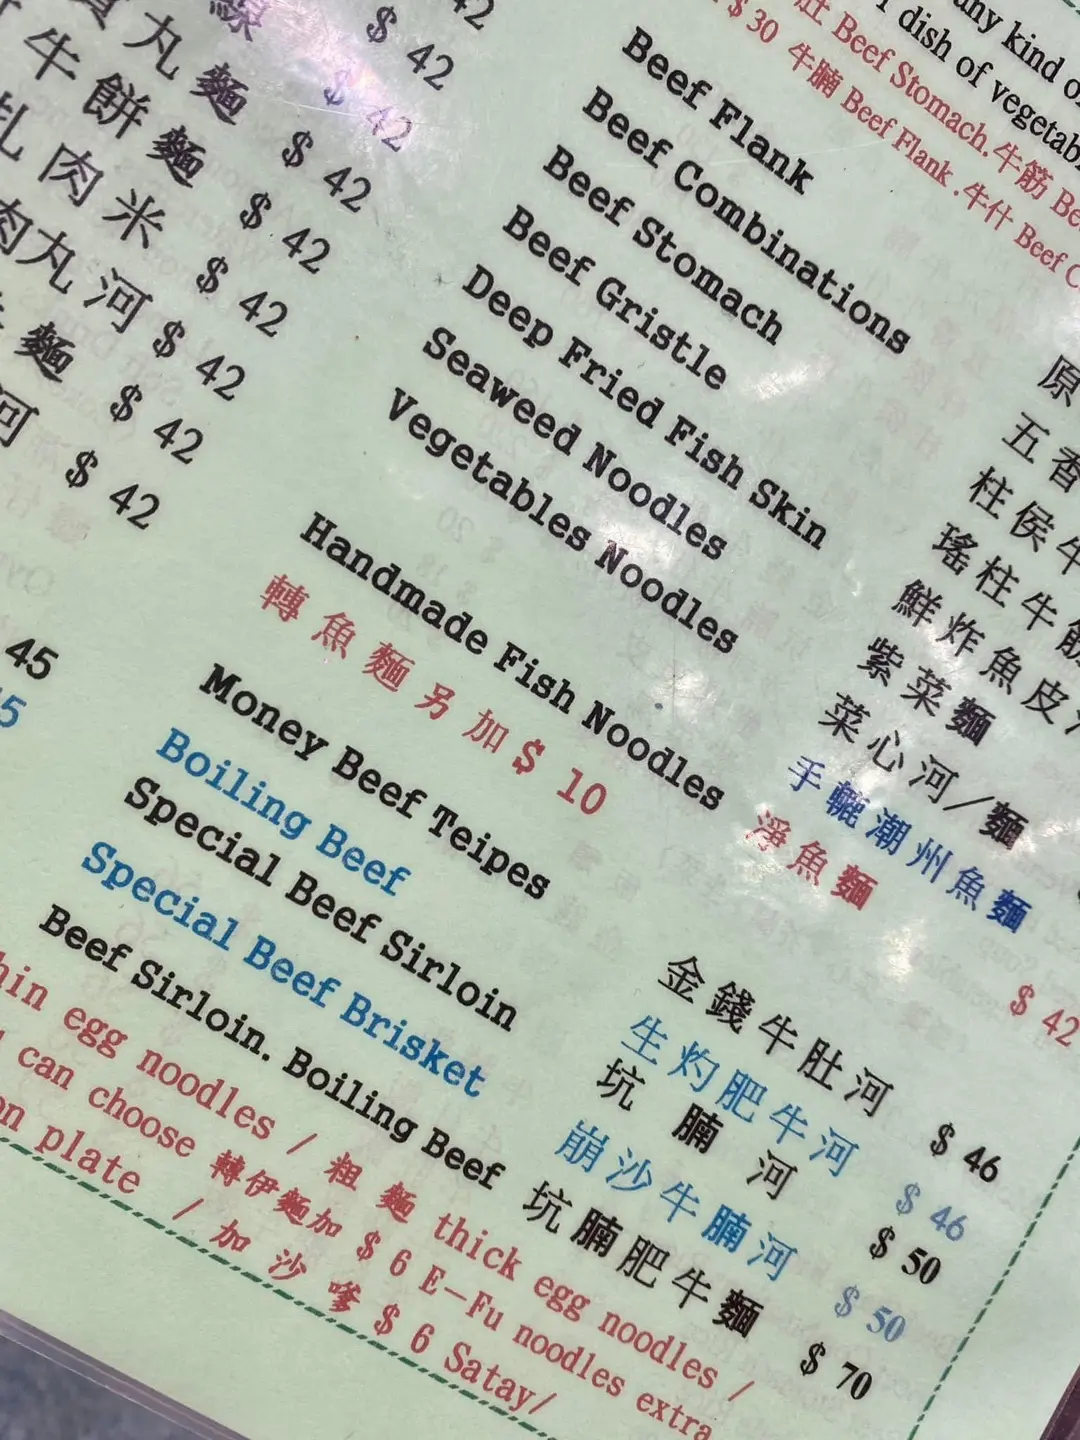 $ 42
線 $ 42
$ 42
丸麵 $ 42
牛餅麵 $ 42
肉米 $ 42
肉丸河 $ 42
麵 $ 42
河 $ 42
45
5
any kind
1 dish of vegetab
$ 30 牛腩 Beef Flank . 牛什 Beef C
肚 Beef Stomach. 牛筋 Be
Beef Flank 原
Beef Combinations 五香
Beef Stomach 柱侯牛
Beef Gristle 瑤柱牛筋
Deep Fried Fish Skin 鮮炸魚皮
Seaweed Noodles 紫菜麵
Vegetables Noodles 菜心河/麵
Handmade Fish Noodles 手轆潮州魚麵
轉魚麵另加 $ 10 淨魚麵 $ 42
Money Beef Teipes 金錢牛肚河 $ 46
Boiling Beef 生灼肥牛河 $ 46
Special Beef Sirloin 坑腩河 $ 50
Special Beef Brisket 崩沙牛腩河 $ 50
Beef Sirloin. Boiling Beef 坑腩肥牛麵 $ 70
hin egg noodles / 粗麵 thick egg noodles /
can choose 轉伊麵加 $ 6 E-Fu noodles extra
on plate / 加沙嗲 $ 6 Satay/